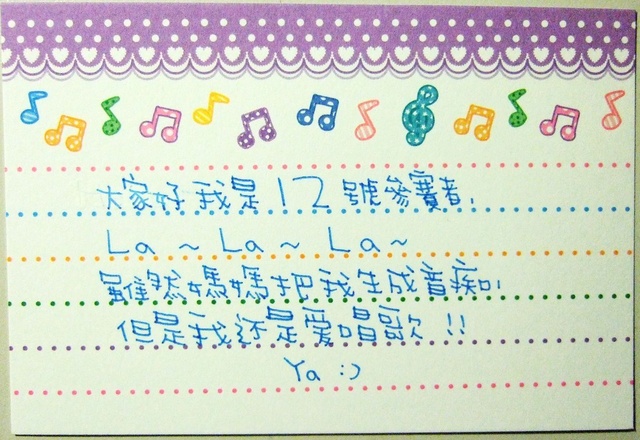 大家好 我是 12 號參賽者,
La ~ La ~ La~
雖然媽媽把我生成音痴,
但是我還是愛唱歌 !!
Ya :)